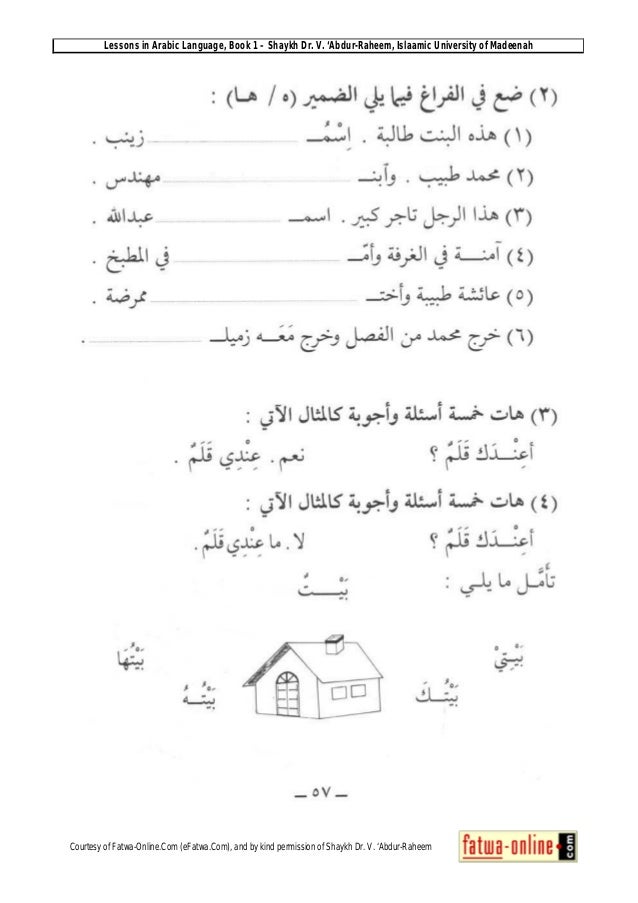 Lessons in Arabic Language, Book 1 - Shaykh Dr. V. ‘Abdur-Raheem, Islaamic University of Madeenah
(٢) ضع في الفراغ فيما يلي الضمير (ه / هـا) :
(١) هذه البنت طالبة . اِسْمُـ ............ زينب .
(٢) محمد طبيب . وآبنـ ............ مهندس .
(٣) هذا الرجل تاجر كبير . اسمـ ............ عبدالله .
(٤) آمنـة في الغرفة وأمّـ ............ في المطبخ .
(٥) عائشة طبيبة وأختـ ............ ممرضة .
(٦) خرج محمد من الفصل وخرج مَعَـه زميلـ ............ .
(٣) هات خمسة أسئلة وأجوبة كالمثال الآتي :
أعِنْـدَك قَلَمٌ ؟ نعم . عِنْدِي قَلَمٌ .
(٤) هات خمسة أسئلة وأجوبة كالمثال الآتي :
أعِنْـدَك قَلَمٌ ؟ لا . ما عِنْدِي قَلَمٌ .
تأَمَّـل ما يلـي : بَيْـتٌ
بَيْـتِيْ بَيْتُهَا
بَيْتُـكَ بَيْتُـهُ
ـ ٥٧ ـ
Courtesy of Fatwa-Online.Com (eFatwa.Com), and by kind permission of Shaykh Dr. V. ‘Abdur-Raheem
fatwa-online.com